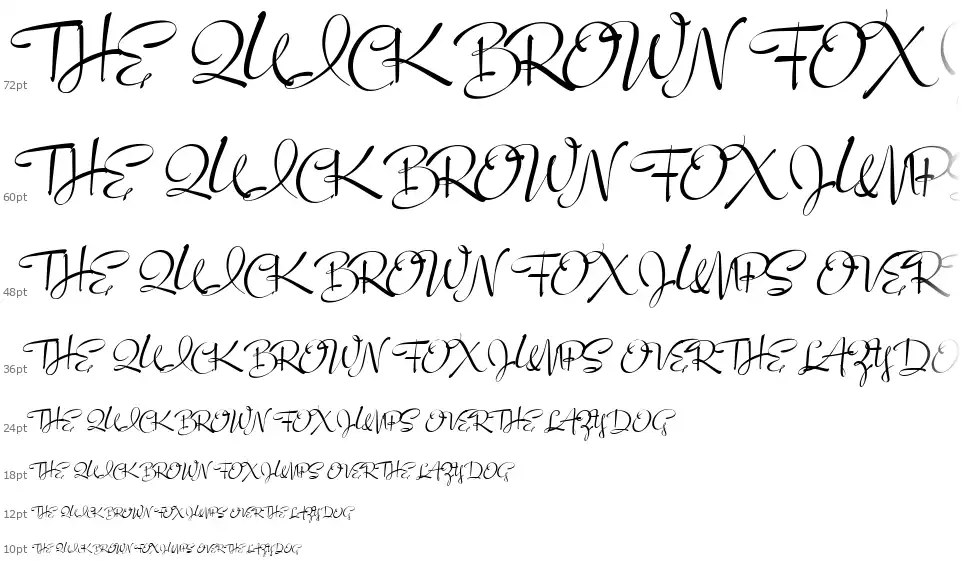 72pt THE QUICK BROWN FOX
60pt THE QUICK BROWN FOX JUMP
48pt THE QUICK BROWN FOX JUMPS OVER
36pt THE QUICK BROWN FOX JUMPS OVER THE LAZY DO
24pt THE QUICK BROWN FOX JUMPS OVER THE LAZY DOG
18pt THE QUICK BROWN FOX JUMPS OVER THE LAZY DOG
12pt THE QUICK BROWN FOX JUMPS OVER THE LAZY DOG
10pt THE QUICK BROWN FOX JUMPS OVER THE LAZY DOG